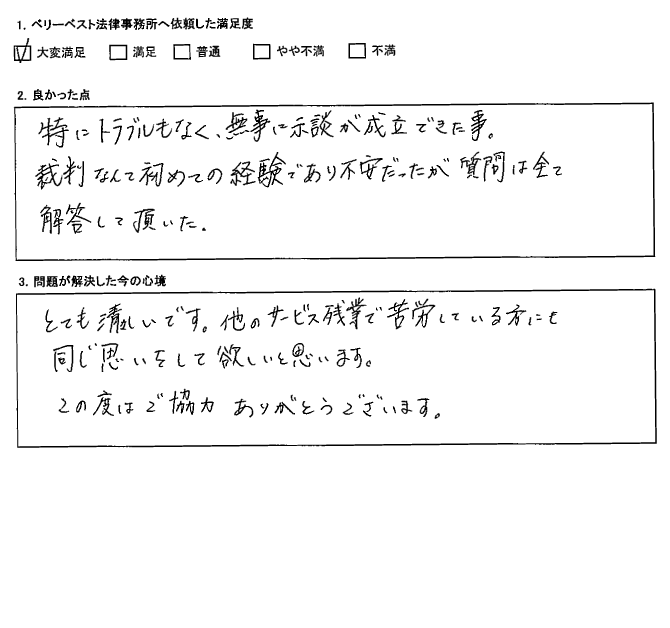 1. ベリーベスト法律事務所へ依頼した満足度
☑大変満足 □満足 □普通 □やや不満 □不満
2. 良かった点
特にトラブルもなく、無事に示談が成立できた事。
裁判なんて初めての経験であり不安だったが質問は全て
解答して頂いた。
3. 問題が解決した今の心境
とても清々しいです。他のサービス残業で苦労している方にも
同じ思いをして欲しいと思います。
この度はご協力ありがとうございます。